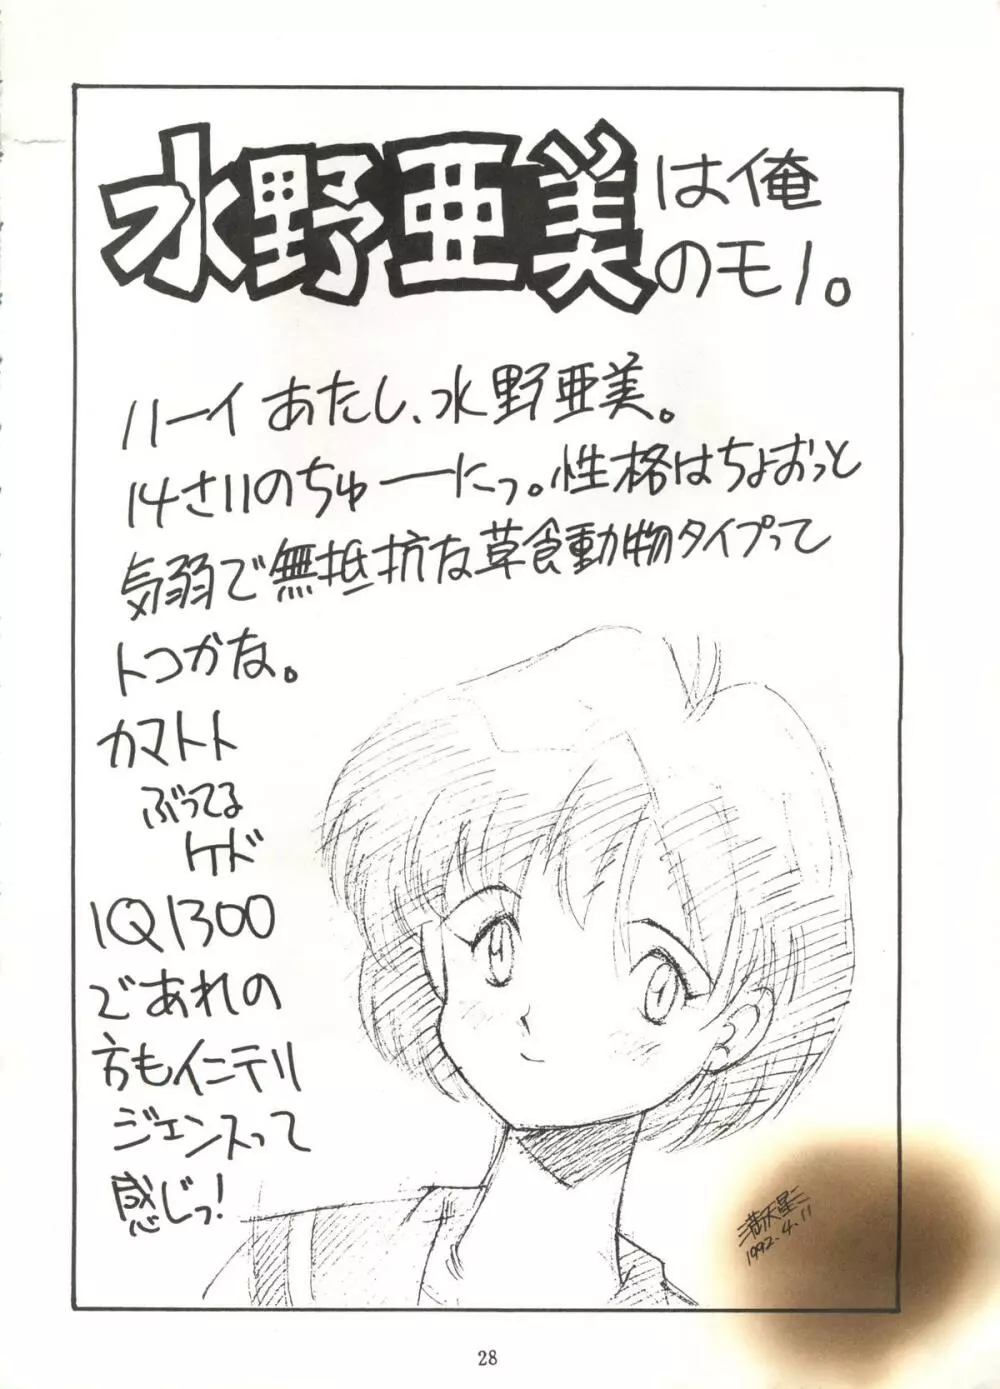 水野亜美は俺
のモノ。
ハーイあたし、水野亜美。
14さいのちゅーにっ。性格はちょおっと
気弱で無抵抗な草食動物タイプって
トコかな。
カマトト
ぶってる
ケド
IQ1300
であれの
方もインテリ
ジェンスって
感じっ！
満天星二
1992.4.11
28